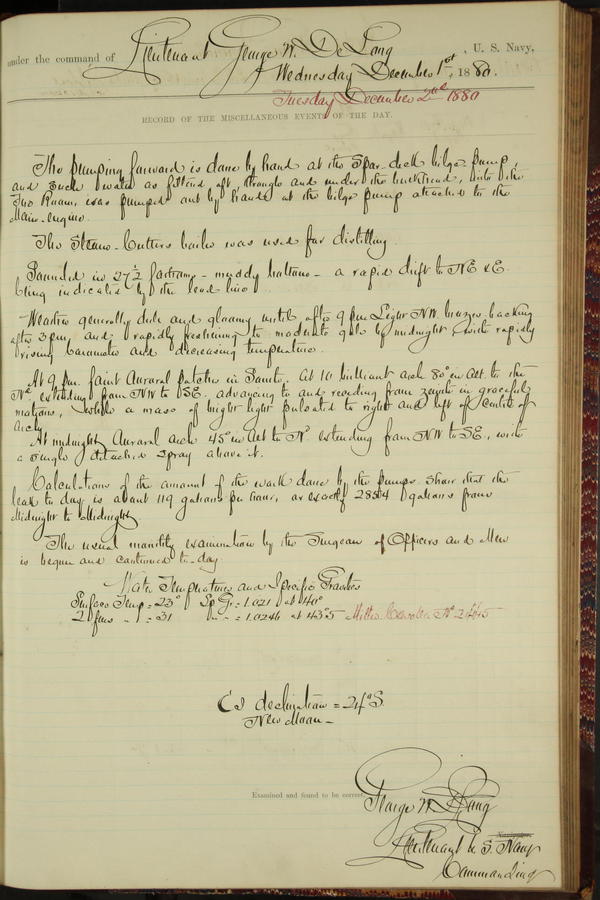 under the command of Lieutenant George W. De Long, U. S. Navy,
Wednesday December 1st, 1880.
Tuesday December 2nd 1880
RECORD OF THE MISCELLANEOUS EVENTS OF THE DAY.
The pumping forward is done by hand at the Spar deck bilge pump,
and such water as filtered aft, through and under the bulkhead, into the
Fire Room, was pumped out by hand at the bilge pump attached to the
Main engine.
The Steam-Cutters boiler was used for distilling.
Sounded in 27½ fathoms - muddy bottom - a rapid drift to NE & E.
being indicated by the lead line.
Weather generally dull and gloomy until after 9 pm Light NW breezes backing
after 3 pm, and rapidly freshening to moderate gale by midnight, with rapidly
rising barometer and decreasing temperature.
At 9 pm. faint Auroral patches in South. At 10 brilliant arch 80° in alt. to the
Nd. extending from NW to SE. advancing to and receding from zenith in graceful
motions, while a mass of bright light pulsated to right and left of centre of
arch.
At midnight Auroral arch 45° in alt to Nd extending from NW to SE., with
a single detached spray above it.
Calculations of the amount of the work done by the pumps show that the
leak to day is about 119 gallons per hour, or exactly 2854 gallons from
Midnight to Midnight.
The usual monthly examination by the Surgeon of Officers and Men
is begun and continued to-day
Water Temperatures and Specific Gravities
Surface Temp = 23° Sp Gr = 1.021 at 40°
2 fms " " = 31 " " = 1.0246 at 43°.5 Miller Casella No 24615
declination = 24° S.
New Moon -
Examined and found to be correct,
George W. De Long
Navigator.
Lieutenant U. S. Navy
Commanding